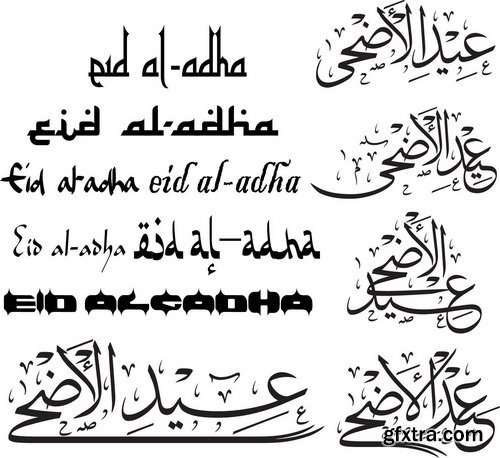 eid al-adha
عيد الأضحى
Eid al-adha
Eid al-adha eid al-adha
عيد الأضحى
Eid al-adha eid al-adha
عيد الأضحى
EID ALCADHA
عيد الأضحى
عيد الأضحى
gfxtra.com